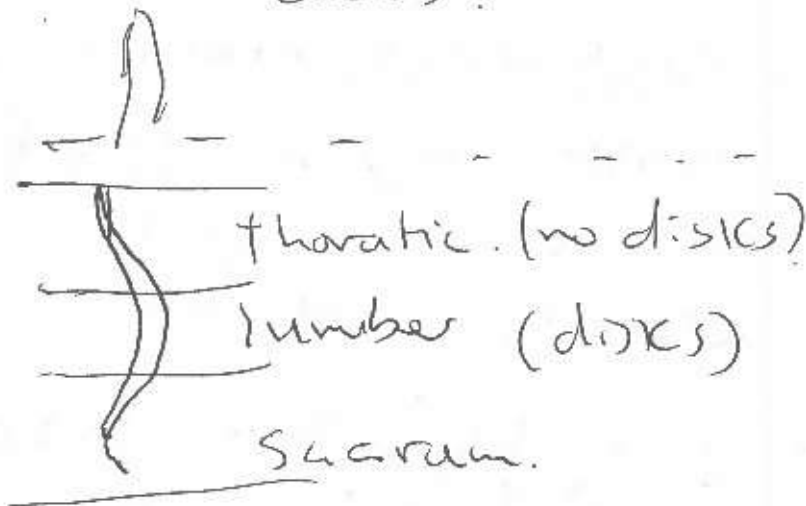 thoratic. (no disks)
lumber (disks)
Sacrum.